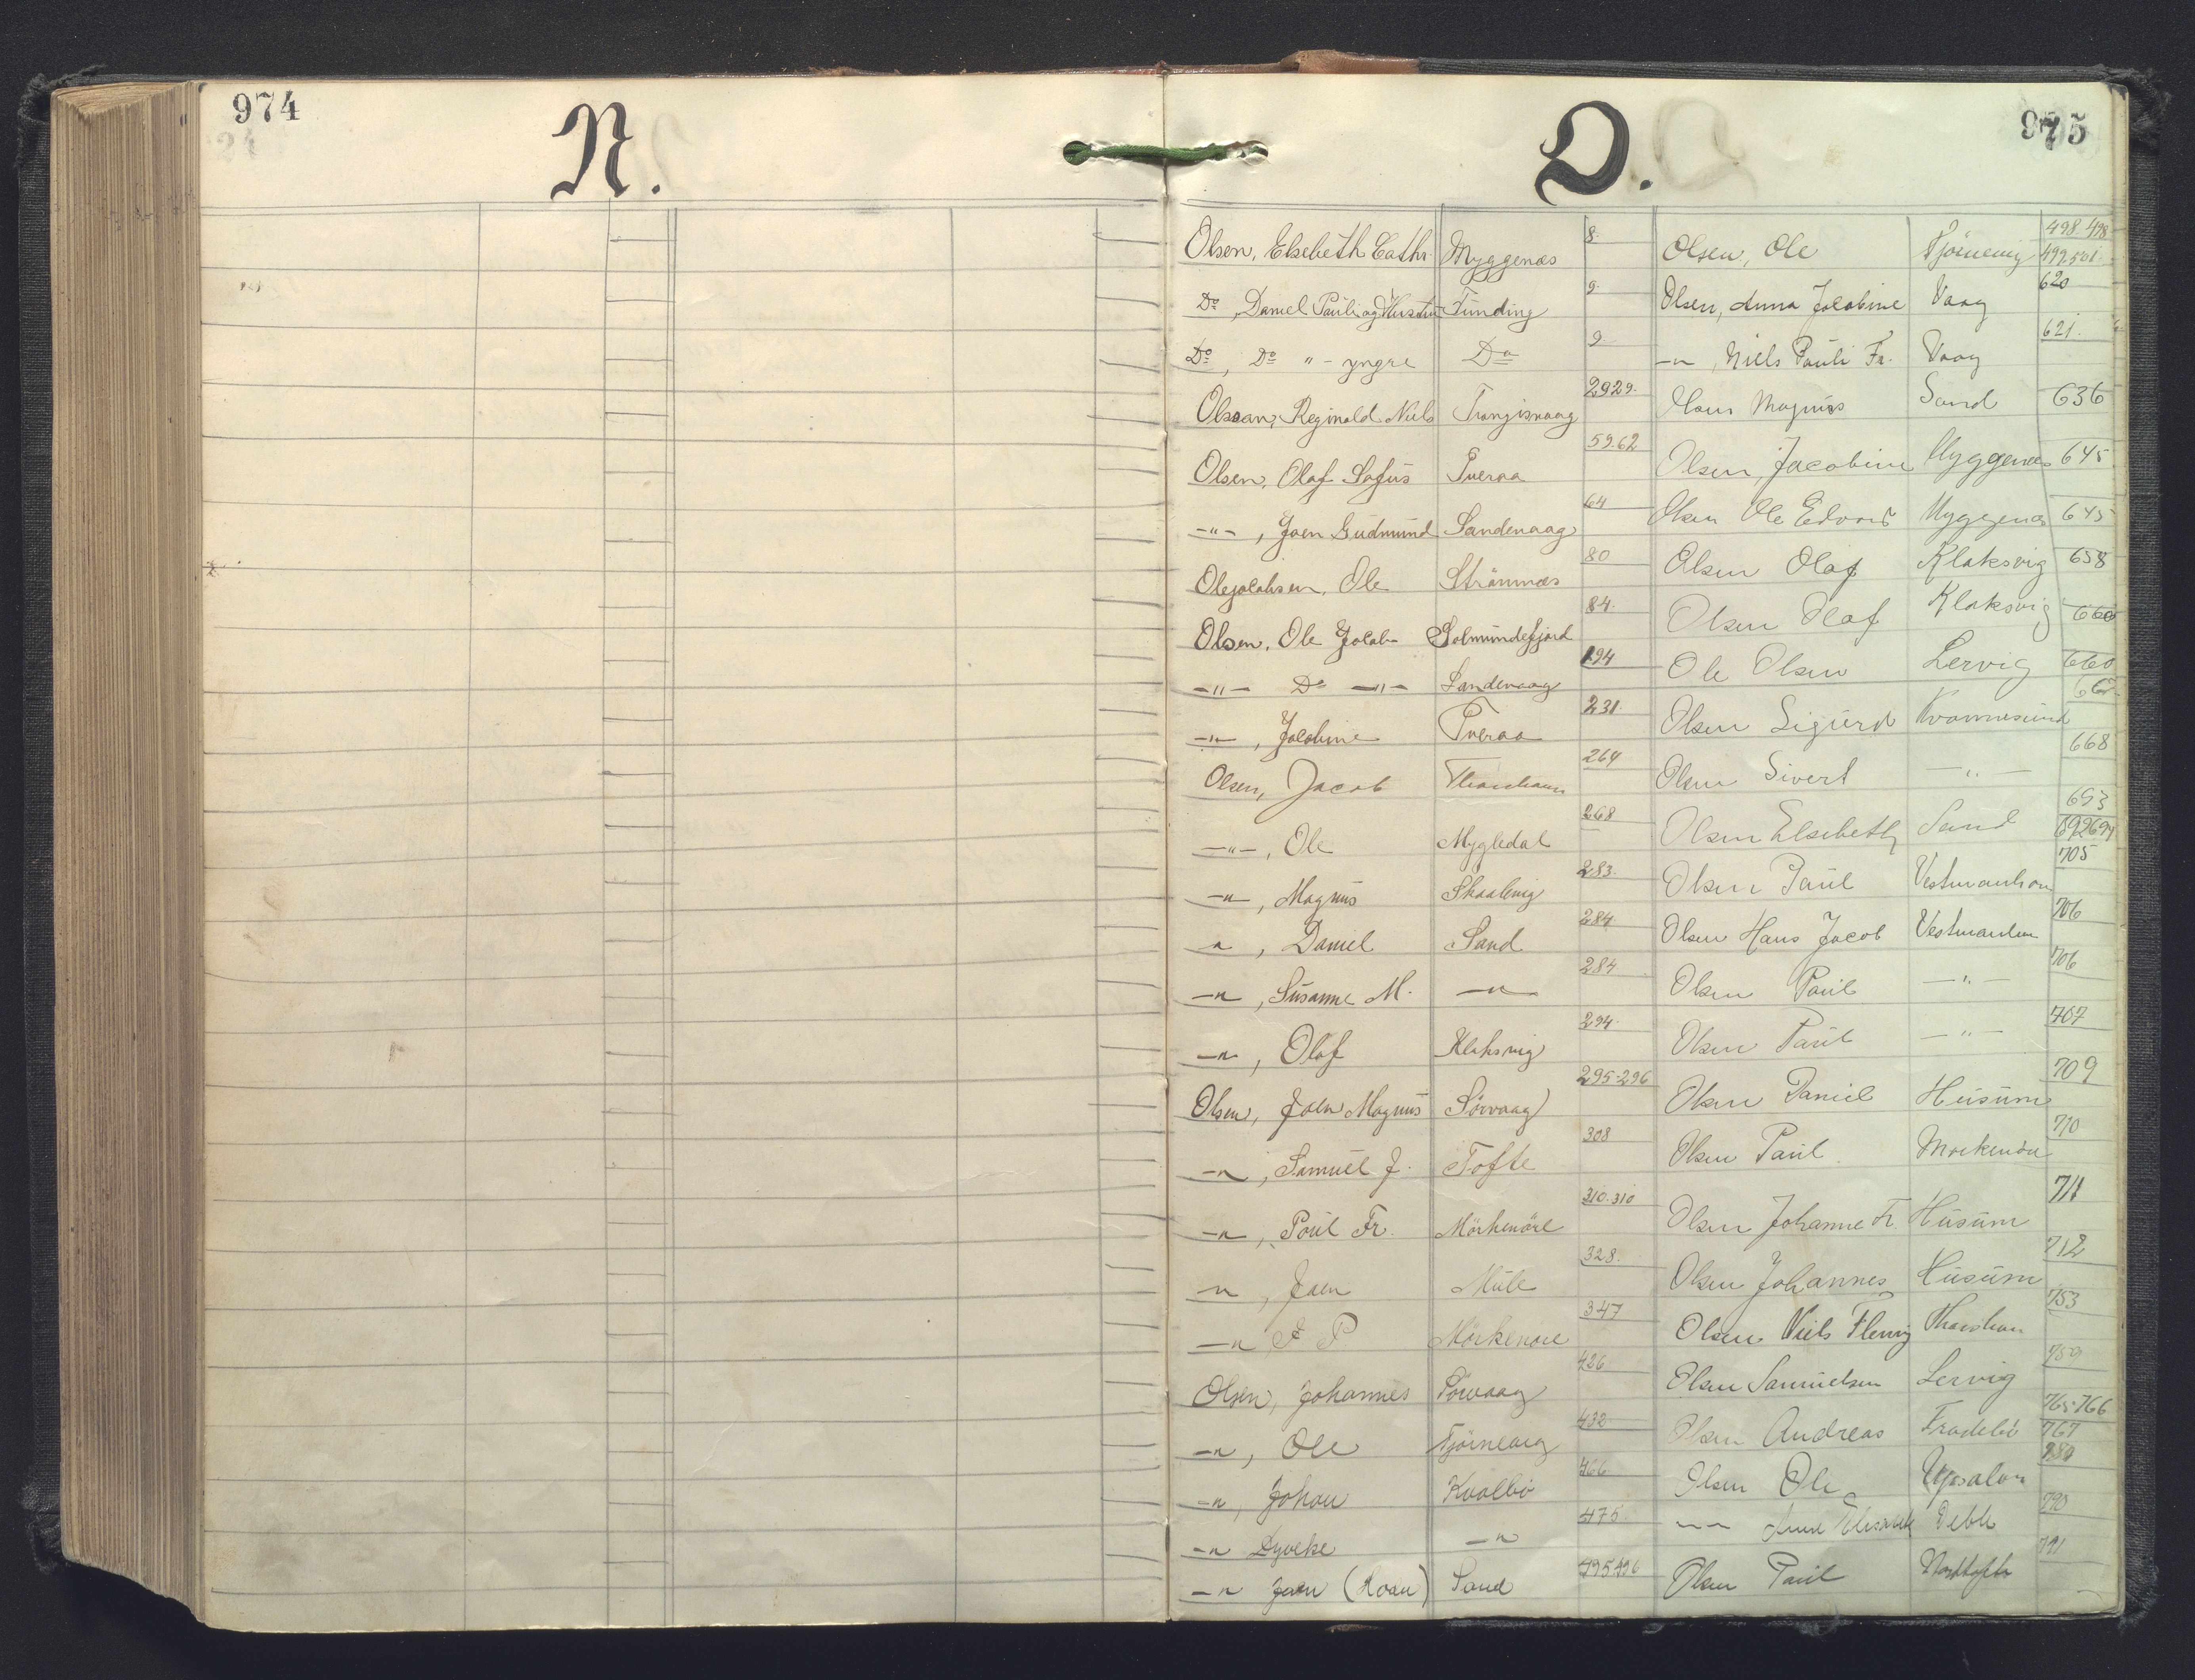 974
N.
O.
975
Olsen, Elsebeth Cathr. Myggenæs 8.
Do, Daniel Pauli og Hustru Funding 9.
Do, Do " - yngre Do 9
Olsean, Reginald Niels Trangisvaag 29 29.
Olsen, Olaf Sofus Tveraa 59.62
-"-, Joen Gudmund Sandevaag 64
Olejacobsen, Ole Strømnæs 80
Olsen, Ole Jacob Solmundefjord 84.
-"- Do -"- Sandevaag 194
-"-, Jacobine Tveraa 231.
Olsen, Jacob Thorshavn 264
-"-, Ole Mygledal 268
-"-, Magnus Skaalevig 283.
-"-, Daniel Sand 284.
-"-, Susanne M. -"- 284
-"-, Olaf Klaksvig 294.
Olsen, Joen Magnus Sörvaag 295-296
-"-, Samuel J. Tofte 308
-"-, Poul Fr. Mörkenöre 310.310
-"-, Joen Mule 328.
-"- P Mörkenöre 347
Olsen, Johannes Sörvaag 426
-"-, Ole Tjörnevig 432.
-"-, Johan Kvalbö 466
-"- Dyveke -"- 475.
-"- Joen (Hoau) Sand 495.496
Olsen, Ole Tjörnevig 498 498 499.501.
Olsen, Anna Jacobine Vaag 620
-"-, Niels Pauli Fr. Vaag 621.
Magnus Sand 636
Olsen, Jacobine Myggenæs 645
Olsen Ole Edvard Myggenæs 645
Olsen Olaf Klaksvig 658
Olsen Olaf Klaksvig 660
Ole Olsen Lervig 660
Olsen Sigurd Kvannesund 665
Olsen Sivert -"- 668
Olsen Elsebeth Sand 693 692 694
Olsen Paul Vestmanhavn 705
Olsen Hans Jacob Vestmanhavn 706
Olsen Paul -"- 706
Olsen Paul -"- 707
Olsen Daniel Husum 709
Olsen Paul Mørkenöre 710
Olsen Johanne Fr. Husum 711
Olsen Johannes Husum 712
Olsen Niels Fleming Thorshavn 753
Olsen Samuelsen Lervig 759
Olsen Andreas Fradebö 765-766 767
Olsen Ole 780
-"- Anne Elisabeth 790
Olsen Paul Nordtofte 791